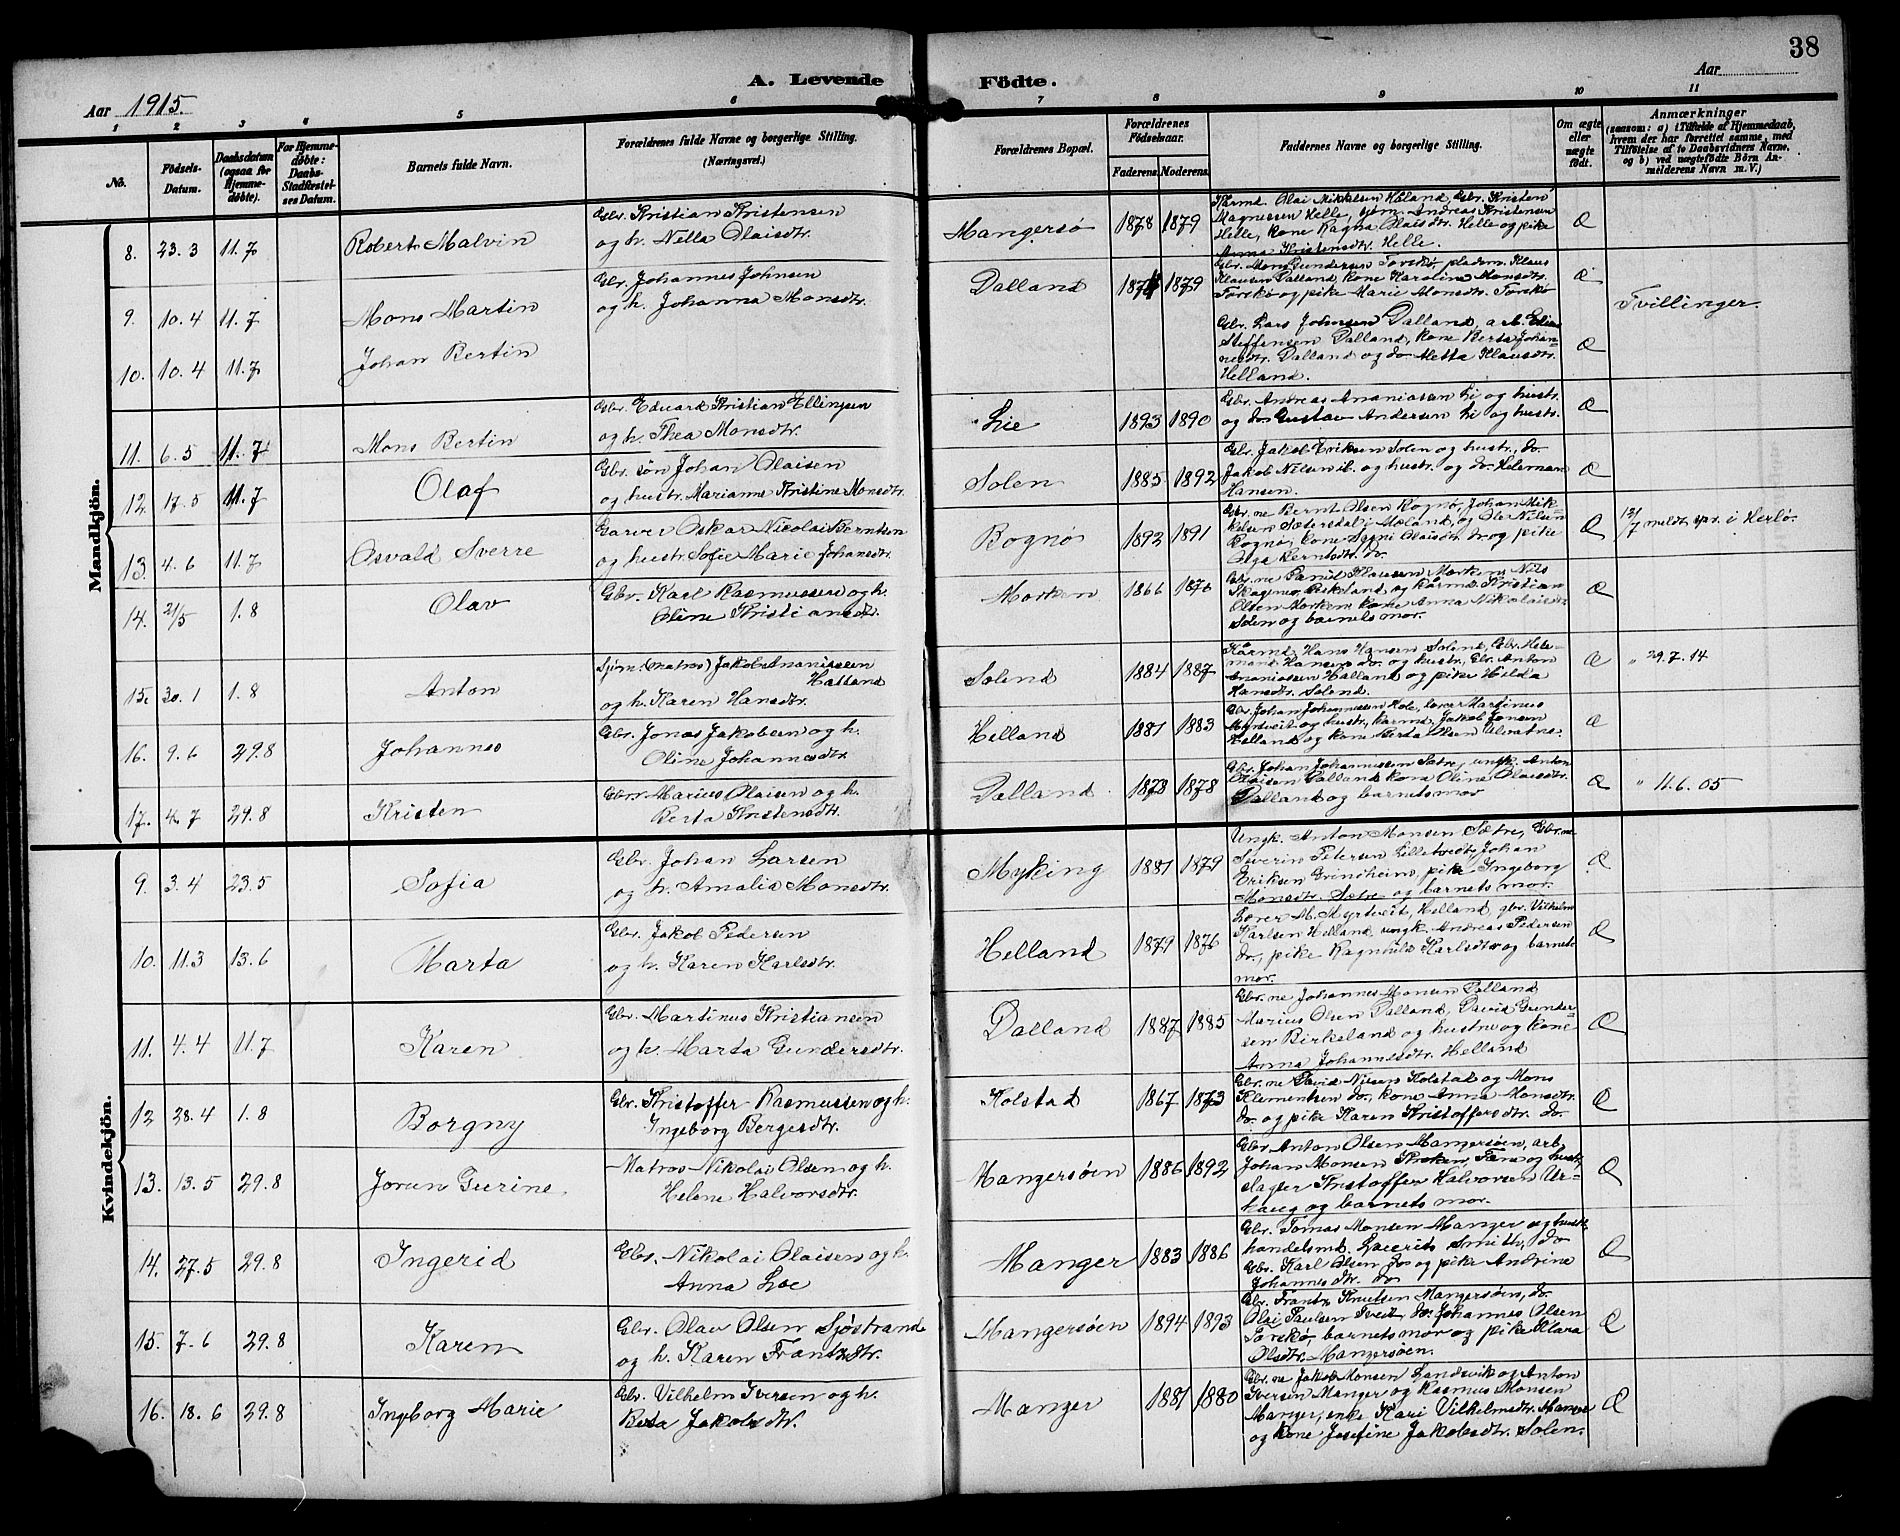 38
A. Levende Födte.
Aar 1915. Aar
1 2 3 4 5 6 7 8 9 10 11
No.
Födsels-
Datum.
Daabsdatum
(ogsaa for
Hjemme-
döbte).
For Hjemme-
døbte:
Daabs-
Stadfæstel-
ses Datum.
Barnets fulde Navn.
Forældrenes fulde Navne og borgerlige Stilling.
(Næringsvei.)
Forældrenes Bopæl.
Forældrenes
Fødselsaar.
Faderens. Moderens.
Faddernes Navne og borgerlige Stilling.
Om ægte
eller
uægte
født.
Anmærkninger
(saasom: a) i Tilfælde af Hjemmedaab,
hvem der har forrettet samme, med
Tilföielse af to Daabsvidners Navne,
og b) ved uægtefødte Börn An-
melderens Navn m. V.)
Mandkjön.
8. 23.3 11.7 Robert Malvin
Gbr. Kristian Kristensen
og h. Nella Olaisdtr.
Mangersø 1878 1879
Kårmd. Olai Mikkelsen Håland, Gbr. Kristen
Magnussen Helle, sjøm. Andreas Kristensen
Helle, kone Ragna Olaisdtr. Helle og pike
Anna Kristensdtr. Helle.
Æ
9. 10.4 11.7 Mons Martin
Gbr. Johannes Johnsen
og h. Johanna Monsdtr.
Dalland 1879
Gbr. Mons Gundersen Torskø, pladsm. Klaus
Klausen Dalland, kone Karolina Monsdtr.
Torskø og pike Marie Monsdtr. Torskø
Æ
Tvillinger.
10. 10.4 11.7 Johan Bertin
Gbr. Lars Johnsen Dalland, arb. Elias
Steffensen Dalland, kone Berta Johan-
nesdtr. Dalland og do Metta Klausdtr.
Helland.
Æ
11. 6.5 11.7 Mons Bertin
Gbr. Edvard Kristian Ellingsen
og h. Thea Monsdtr.
Lie 1893 1890
Gbr. Andreas Ananiassen Li og hustr.
og do Gustav Andersen Li og hustr.
Æ
12. 17.5 11.7 Olaf
Gbr. søn Johan Olaisen
og hustr. Marianne Kristine Monsdtr.
Solen 1885 1892
Gbr. Jakob Eriksen Solen og hustr., do.
Jakob Nilsen ib. og hustr. og do. Halvman
Hansen.
Æ
13. 4.6 11.7 Osvald Sverre
Garver Oskar Nicolai Berntsen
og hustr. Sofie Marie Johansdtr.
Bognø 1892 1891
Gbr.ne Bernt Olsen Bognø, Johan Mik-
kelsen Sætersdal, Mæland, og Ole Nilsen
Bognø, kone Agni Olaisdtr. do og pike
Olga Berntsdtr. do.
Æ
12/7 meldt spr. i Herlø.
14. 21/5 1.8 Olav
Gbr. Karl Rasmussen og h.
Oline Kristiansdtr.
Morken 1866 1870
Gbr.ne David Klausen Morken, Nils
Skagenes, Birkeland, og kårmd. Kristian
Olsen Morken, kone Anna Nikolaisdtr.
Solen og barnets mor.
Æ
15. 30.1 1.8 Anton
Sjøm. (matros) Jakob Ananiassen
Halland
og h. Karen Hansdtr.
Solend 1884 1887
Kårmd. Hans Hansen Solend, Gbr. Hele-
mand Hansen do. og hustr., Gbr. Anton
Ananiassen Halland og pike Hilda
Hansdtr. Solend.
Æ
" 29.7.14
16. 9.6 29.8 Johannes
Gbr. Jonas Jakobsen og h.
Oline Johannesdtr.
Helland 1881 1883
Gbr. Johan Johannessen Hole, lærer Martinus
Myrtveit og hustr., kårmd. Jakob Jonsen
Helland og kone Berta Olsen Alvatne.
Æ
17. 4.7 29.8 Kristen
Gbr. Marius Olaisen og h.
Berta Kristensdtr.
Dalland 1878 1878
Gbr. Johan Johannessen Sætre, ungk. Anton
Olaisen Dalland, kone Oline Olaisdtr.
Dalland og barnets mor
Æ
" 11.6.05
Kvindekjön.
9. 3.4 23.5 Sofia
Gbr. Johan Larsen
og h. Amalia Monsdtr.
Myking 1881 1879
Ungk. Anton Monsen Sætre, Gbr.ne
Severin Petersen Lilletvedt, Johan
Eriksen Grindheim, pike Ingeborg
Monsdtr. Sætre og barnets mor.
Æ
10. 11.3 13.6 Marta
Gbr. Jakob Pedersen
og h. Karen Karlsdtr.
Helland 1879 1876
Lærer M. Myrtveit, Helland, gbr. Vilhelm
Karlsen Helland, ungk. Andreas Pedersen
do., pike Ragnhild Karlsdtr og barnets
mor.
Æ
11. 4.4 11.7 Karen
Gbr. Martinus Kristiansen
og h. Marta Gundersdtr.
Dalland 1887 1885
Gbr.ne Johannes Monsen Dalland
Marius Olsen Dalland, David Gunder-
sen Birkeland og hustru og kone
Anna Johannesdtr. Helland
Æ
12 28.4 1.8 Borgny
Gbr. Kristoffer Rasmussen og h.
Ingeborg Bergesdtr.
Kolstad 1867 1873
Gbr.ne David Nilsen Kolstad og Mons
Klementsen do., kone Anna Monsdtr.
do. og pike Karen Kristoffersdtr. do.
Æ
13. 13.5 29.8 Jorun Gurine
Matros Nikolai Olsen og h.
Helene Halvorsdtr.
Mangersøen 1886 1892
Gbr. Anton Olsen Mangersøen, arb.
Johan Monsen Kroken, Fane og hustr.,
slagter Kristoffer Halvorsen Ur-
haug og barnets mor.
Æ
14. 27.5 29.8 Ingerid
Gbr. Nikolai Olaisen og h.
Anna Loe
Manger 1883 1886
Gbr. Tomas Monsen Manger og hustr.
handelsmd. Laurits Smith, do
Gbr. Karl Olsen do og pike Andrine
Johannesdtr. do
Æ
15. 7.6 29.8 Karen
Gbr. Olav Olsen Sjöstrand
og h. Karen Frantzdtr.
Mangersøen 1894 1893
Gbr. Frantz Knutsen Mangersøen, do.
Olai Paulsen Tveit, do. Johannes Olsen
Torskø, barnets mor og pike Klara
Olsdtr. Mangersøen.
Æ
16. 18.6 29.8 Ingeborg Marie
Gbr. Vilhelm Iversen og h.
Berta Jakobsdtr.
Manger 1881 1880
Gbr.ne Jakob Monsen Landsvik og Anton
Iversen Manger og Rasmus Monsen
Manger, enke Kari Vilhelmsdtr. Manger
og kone Josefine Jakobsdtr. Solen.
Æ